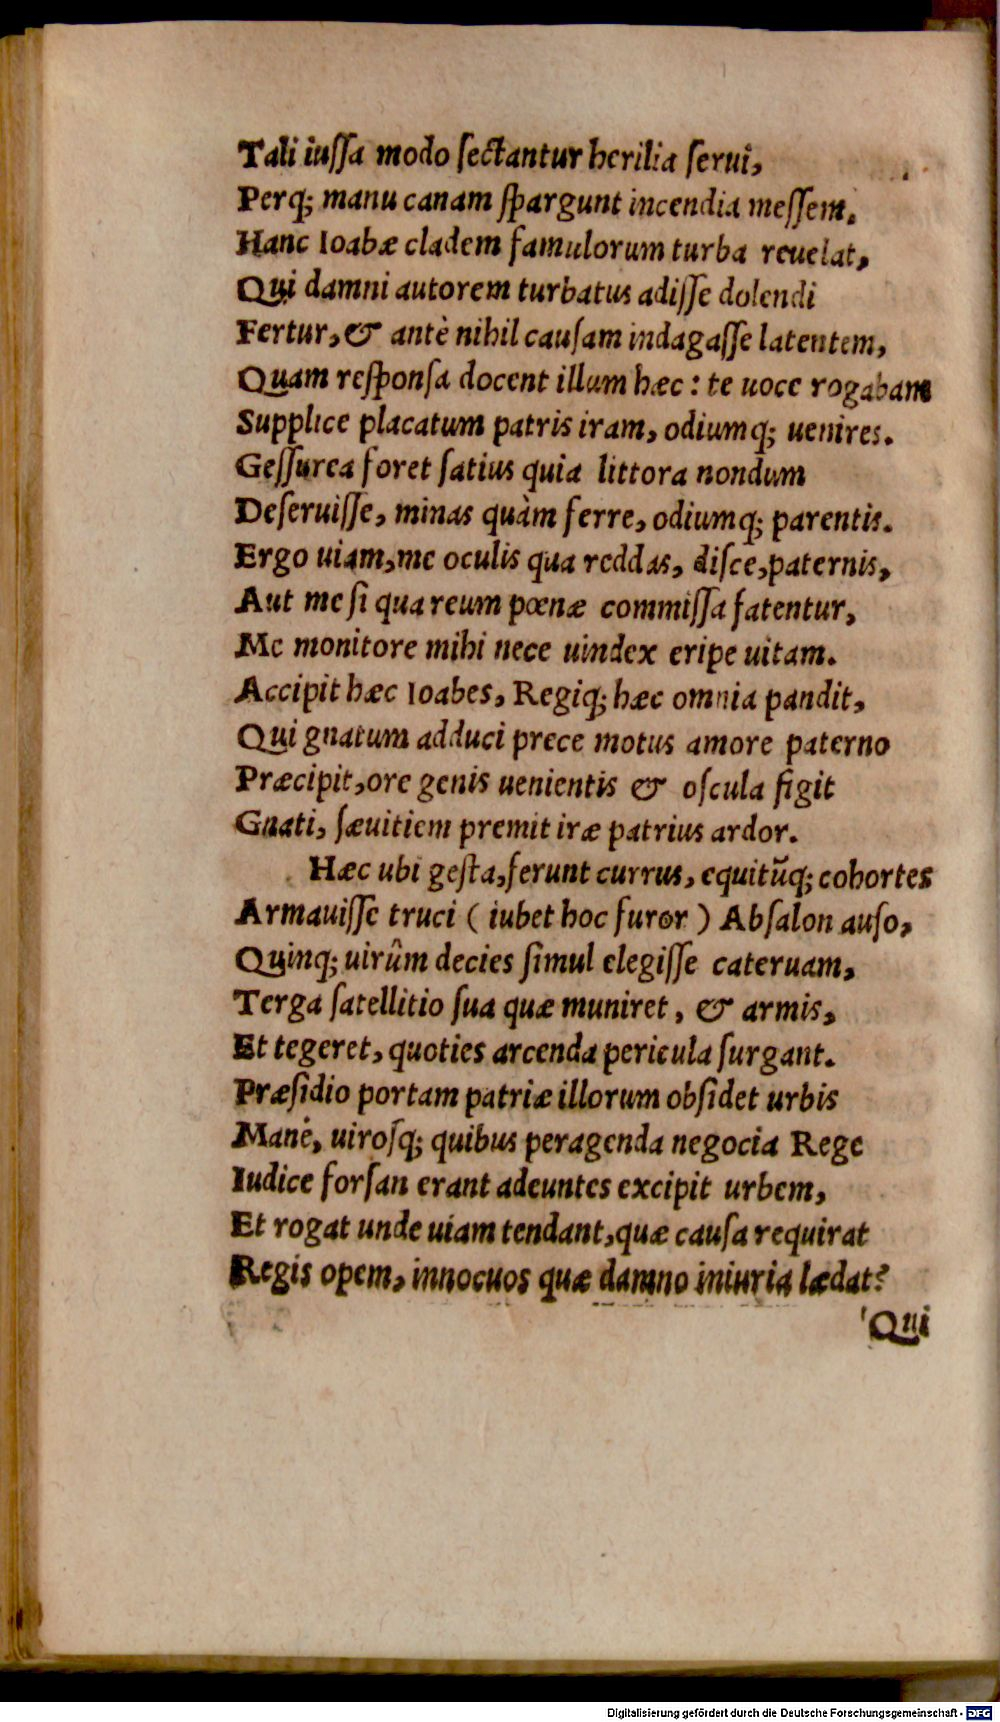 Tali iuſſa modo ſectantur herilia ſerui,
Perq; manu canam ſpargunt incendia meſſem.
Hanc Ioabæ cladem famulorum turba reuelat,
Qui damni autorem turbatus adiſſe dolendi
Fertur, & antè nihil cauſam indagaſſe latentem,
Quam reſponſa docent illum hæc: te uoce rogabam
Supplice placatum patris iram, odiumq; uenires.
Geſſurea foret ſatius quia littora nondum
Deſeruiſſe, minas quàm ferre, odiumq; parentis.
Ergo uiam, me oculis qua reddas, diſce, paternis,
Aut me ſi qua reum pœnæ commiſſa fatentur,
Me monitore mihi nece uindex eripe uitam.
Accipit hæc Ioabes, Regiq; hæc omnia pandit,
Qui gnatum adduci prece motus amore paterno
Præcipit, ore genis uenientis & oſcula figit
Gnati, ſæuitiem premit iræ patrius ardor.
Hæc ubi geſta, ferunt currus, equitũq; cohortes
Armauiſſe truci ( iubet hoc furor ) Abſalon auſo,
Quinq; uirûm decies ſimul elegiſſe cateruam,
Terga ſatellitio ſua quæ muniret, & armis,
Et tegeret, quoties arcenda pericula ſurgant.
Præſidio portam patriæ illorum obſidet urbis
Manè, uiroſq; quibus peragenda negocia Rege
Iudice forſan erant adeuntes excipit urbem,
Et rogat unde uiam tendant, quæ cauſa requirat
Regis opem, innocuos quæ damno iniuria lædat?
Qui
Digitalisierung gefördert durch die Deutsche Forschungsgemeinschaft - DFG